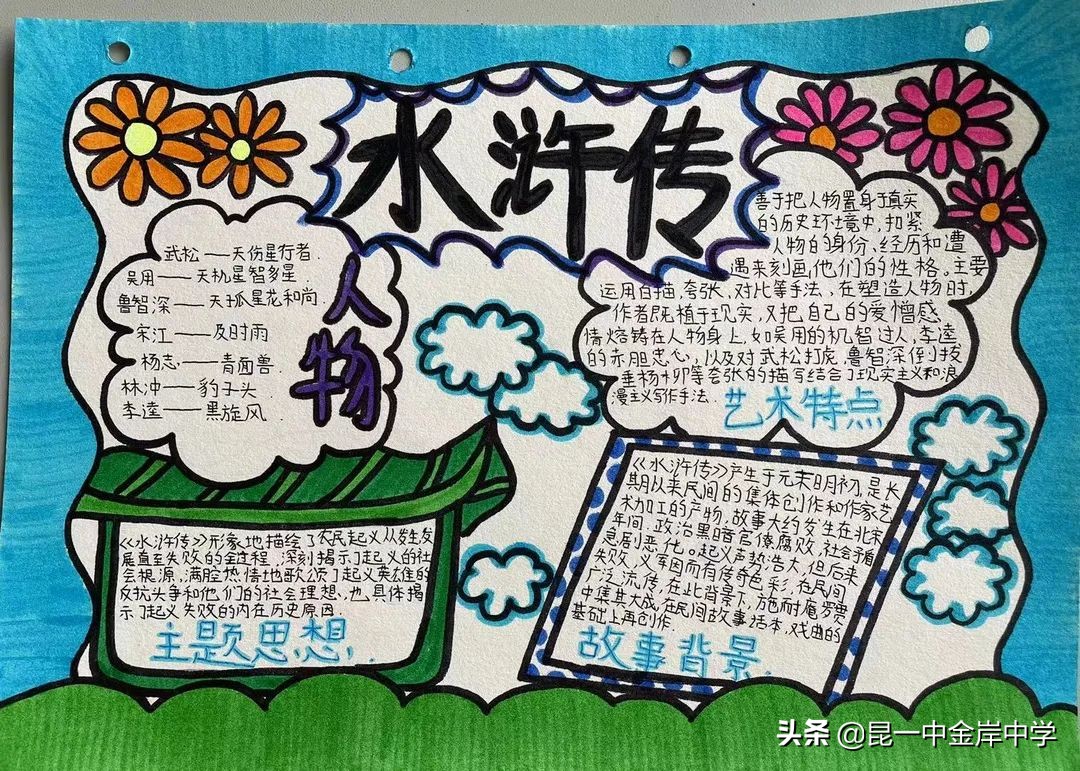 水浒传
人物
武松——天伤星行者.
吴用——天机星智多星
鲁智深——天孤星花和尚
宋江——及时雨
杨志——青面兽
林冲——豹子头
李逵——黑旋风.
善于把人物置身于真实
的历史环境中,扣紧
人物的身份、经历和遭
遇来刻画他们的性格。主要
运用白描,夸张,对比等手法,在塑造人物时,
作者既植于现实,又把自己的爱憎感
情熔铸在人物身上,如吴用的机智过人,李逵
的赤胆忠心,以及对武松打虎,鲁智深倒拔
垂杨柳等夸张的描写结合了现实主义和浪
漫主义写作手法.
艺术特点
《水浒传》形象地描绘了农民起义从发生发
展直至失败的全过程,深刻揭示了起义的社
会根源,满腔热情地歌颂了起义英雄的
反抗斗争和他们的社会理想,也具体揭
示了起义失败的内在历史原因.
主题思想
《水浒传》产生于元末明初,是长
期以来民间的集体创作和作家艺
术加工的产物,故事大约发生在北宋
年间,政治黑暗官僚腐败,社会矛盾
急剧恶化。起义声势浩大,但后来
失败,义军因而有传奇色彩,在民间
广泛流传,在此背景下,施耐庵罗贯
中集其大成,在民间故事话本,戏曲的
基础上再创作
故事背景
头条 @昆一中金岸中学